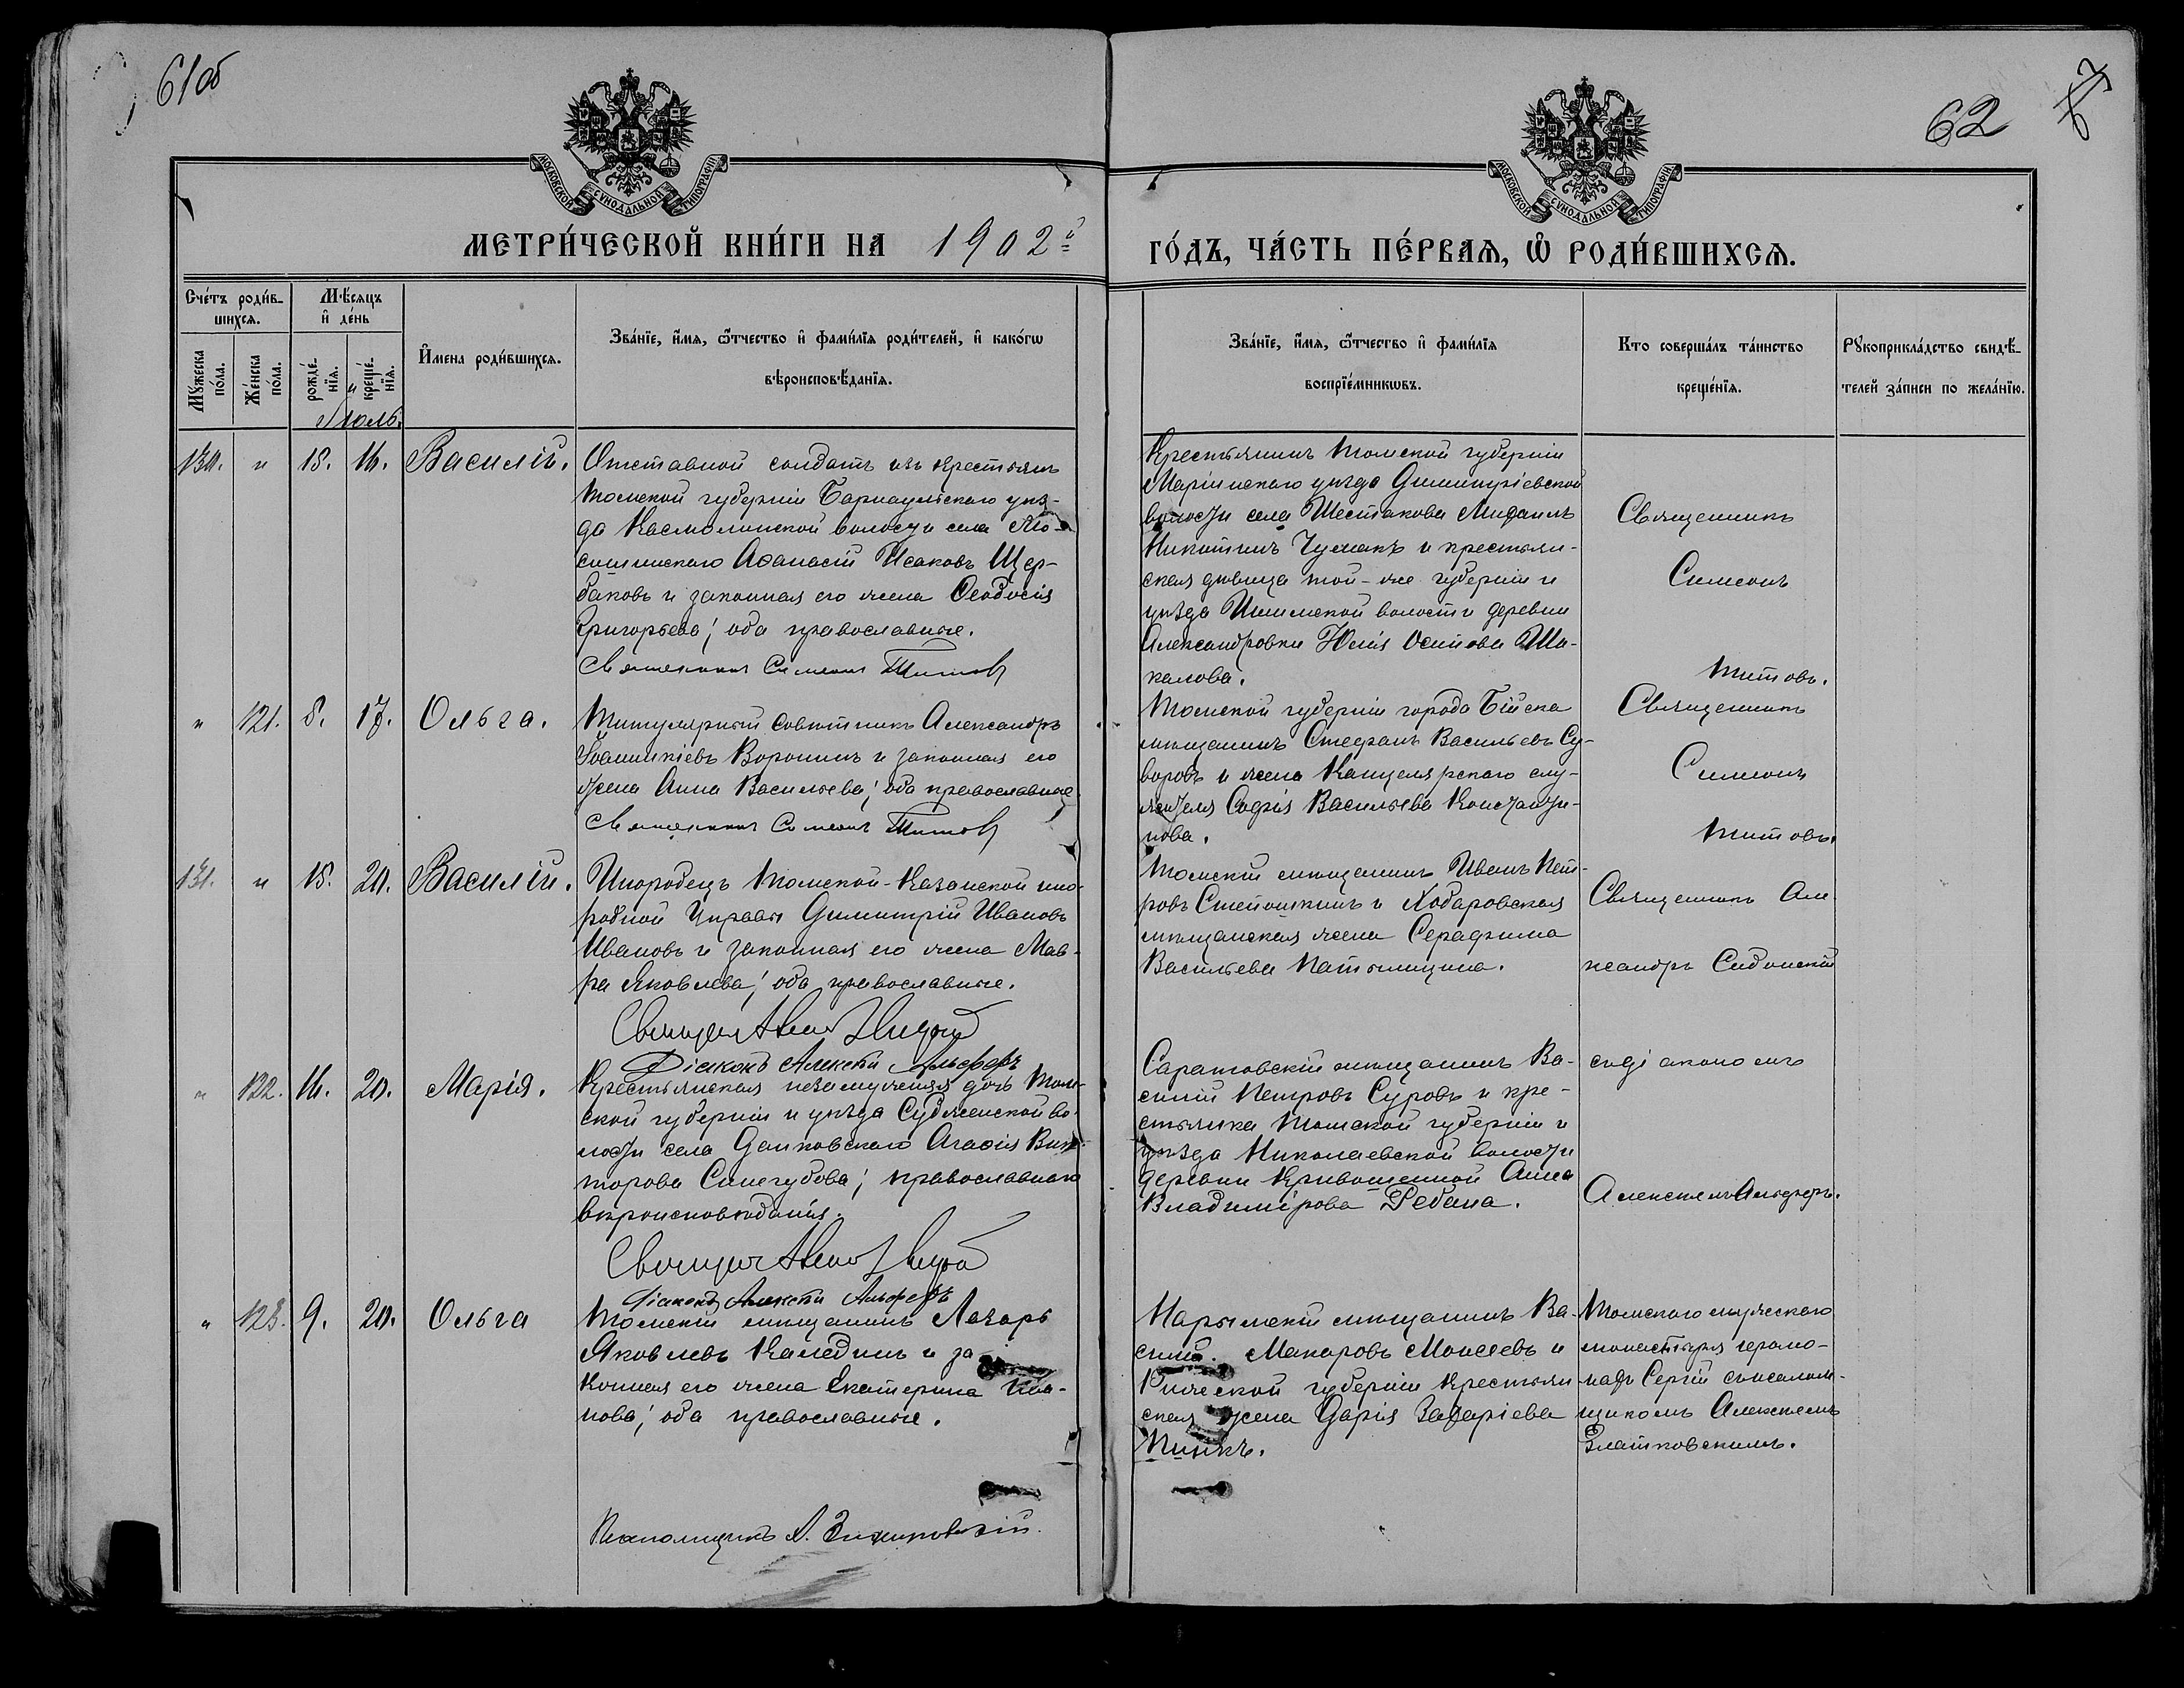 61об
62
МОСКОВСКОЙ СѴНОДАЛЬНОЙ ТИПОГРАФІИ
МОСКОВСКОЙ СѴНОДАЛЬНОЙ ТИПОГРАФІИ
МЕТРИ́ЧЕСКОЙ КНИ́ГИ НА 1902й
ГО́ДЪ, ЧА́СТЬ ПЕ́РВАЯ, Ѡ҆ РОДИ́ВШИХСЯ.
Сче́тъ роди́в-
шихся.
Мꙋжеска
по́ла.
Же́нска
по́ла.
Мѣ́сяцъ
и҆ де́нь
рожде́-
нїя.
креще́-
нїя.
И҆мена роди́вшихся.
Зва́нїе, и҆́мя, ѻ҆́тчество и҆ фами́лїя роди́телей, и҆ како́гѡ
вѣроисповѣ́данїя.
Зва́нїе, и҆́мя, ѻ҆́тчество и҆ фами́лїя
воспрїе́мникѡвъ.
Кто соверша́лъ та́инство
креще́нїя.
Рꙋкоприкла́дство свидѣ́-
телей за́писи по жела́нїю.
Іюль.
130. " 15. 16. Василій.
Отставной солдатъ изъ крестьянъ
Томской губерніи Барнаульскаго уѣз-
да Касмалинской волости села
Аѳанасій Исаковъ Щер-
баковъ и законная его жена Ѳеодосія
Григорьева; оба православные.
Священникъ Симеонъ Титовъ
Крестьянинъ Томской губерніи
Маріинскаго уѣзда Димитріевской
волости села Шестакова Михаилъ
Никитинъ Чумакъ и крестьян-
ская дѣвица той-же губерніи и
уѣзда волости деревни
Александровки Юлія Осипова Ша-
калова.
Священникъ
Симеонъ
Титовъ.
" 121. 8. 17. Ольга.
Титулярный совѣтникъ Александръ
Іоанникіевъ Воронинъ и законная его
жена Анна Васильева; оба православные
Священникъ Симеонъ Титовъ
Томской губерніи города Бійска
мѣщанинъ Стефанъ Васильевъ Су-
воровъ и жена Канцелярскаго слу-
жителя Софія Васильева Константи-
нова.
Священникъ
Симеонъ
Титовъ.
131. " 15. 20. Василій.
Инородецъ Томской-Казанской ино-
родной Управы Димитрій Ивановъ
Ивановъ и законная его жена Мав-
ра Яковлева; оба православные.
Діаконъ Алексѣй Альферъ
Томскій мѣщанинъ Иванъ Пет-
ровъ Степошкинъ и
мѣщанская жена Серафима
Васильева
Священникъ Але-
ксандръ Сидонскій
" 122. 16. 20. Марія.
Крестьянская незамужняя дочь Том-
ской губерніи и уѣзда Судженской во-
лости села Данковскаго Агаѳія Вик-
торова Синегубова; православнаго
вѣроисповѣданія.
Діаконъ Алексѣй Альферъ
Саратовскій мѣщанинъ Ва-
силій Петровъ Суровъ и кре-
стьянка Томской губерніи и
уѣзда Николаевской волости
деревни Кривошеиной Анна
Владимірова Ребана.
съ діакономъ
Алексѣемъ Альферъ.
" 123. 9. 20. Ольга
Томскій мѣщанинъ Лазарь
Яковлевъ Каледилъ и за-
конная его жена Екатерина Ива-
нова; оба православные.
Псаломщикъ А. Златковскій.
Нарымскій мѣщанинъ Ва-
силій Макаровъ Моисеевъ и
губерніи крестьян-
ская жена Дарія Захаріева
Томскаго мужескаго
монастыря іеромо-
нахъ Сергій съ псалом-
щикомъ Алексѣемъ
Златковскимъ.